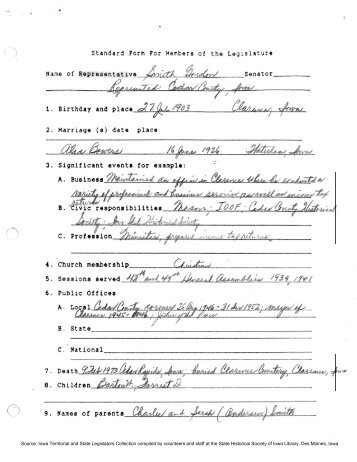 Standard Form For Members of the Legislature
Name of Representative Smith, Gordon Senator
Represented Cedar County, Iowa
1. Birthday and place 27 Jul 1903 Clarence, Iowa
2. Marriage (s) date place
Alta Bowers 16 June 1926 Waterloo, Iowa
3. Significant events for example:
A. Business Maintained an office in Clarence where he conducted a
variety of professional and business services, as well as income tax
returns
B. Civic responsibilities Mason; IOOF; Cedar County Historical
Society; Iowa State Historical Society
C. Profession Minister, prepared income tax returns
4. Church membership Christian
5. Sessions served 48th and 49th General Assemblies 1939, 1941
6. Public Offices
A. Local Cedar County coroner 26 Aug 1946-31 Dec 1952; mayor of
Clarence 1945-1946; Justice of the Peace
B. State
C. National
7. Death 9 Feb 1973 Cedar Rapids, Iowa; buried Clarence Cemetery, Clarence, Iowa
8. Children Barton W.; Forrest D.
9. Names of parents Charles and Sarah (Anderson) Smith
Source: Iowa Territorial and State Legislators Collection compiled by volunteers and staff at the State Historical Society of Iowa Library, Des Moines, Iowa.